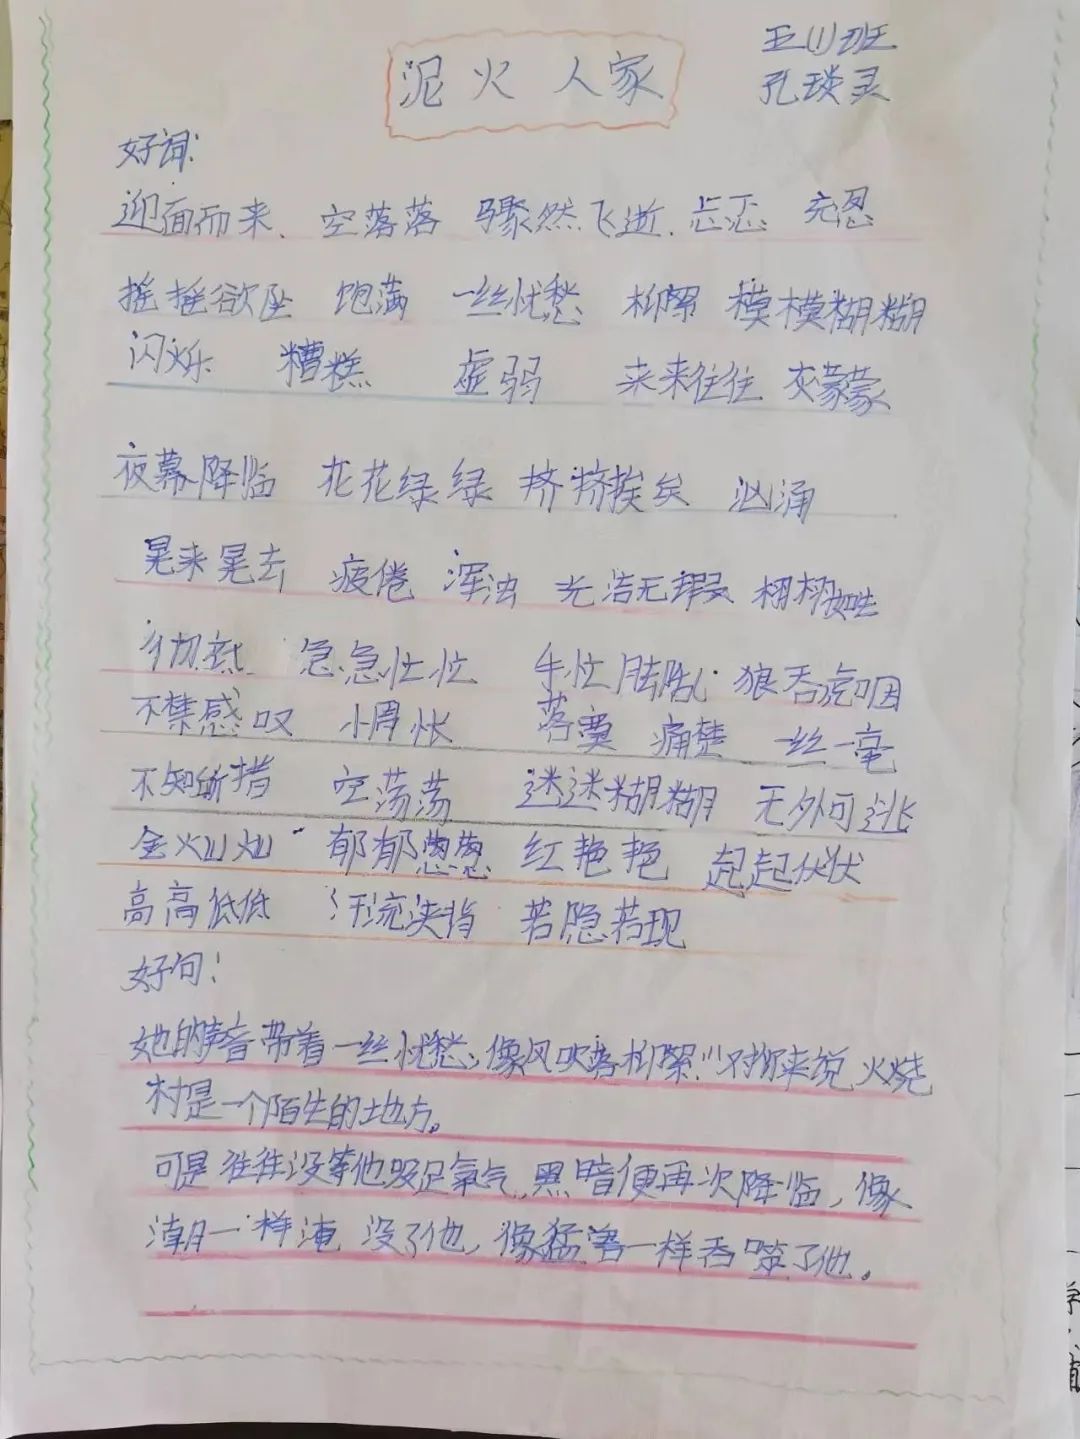 五(1)班
泥火人家
孔琰灵
好词:
迎面而来、空落落 骤然飞逝、忐忑 充恩
摇摇欲坠 饱满 一丝忧愁 柳絮 模模糊糊
闪烁 糟糕 虚弱 来来往往 灰蒙蒙
夜幕降临 花花绿绿 挤挤挨矣 汹涌
晃来晃去 疲倦 浑浊 光洁无瑕 栩栩如生
彻底 急急忙忙 手忙脚乱 狼吞虎咽
不禁感叹 惆怅 落寞 痛楚 一丝一毫
不知所措 空荡荡 迷迷糊糊 无外可逃
金灿灿 郁郁葱葱 红艳艳 起起伏伏
高高低低 汗流浃背 若隐若现
好句!
她的声音带着一丝忧愁,像风吹落柳絮:"对你来说,火烧
村是一个陌生的地方。
可是往往没等他吸足氧气,黑暗便再次降临,像
潮一样淹没了他,像猛兽一样吞噬了他。